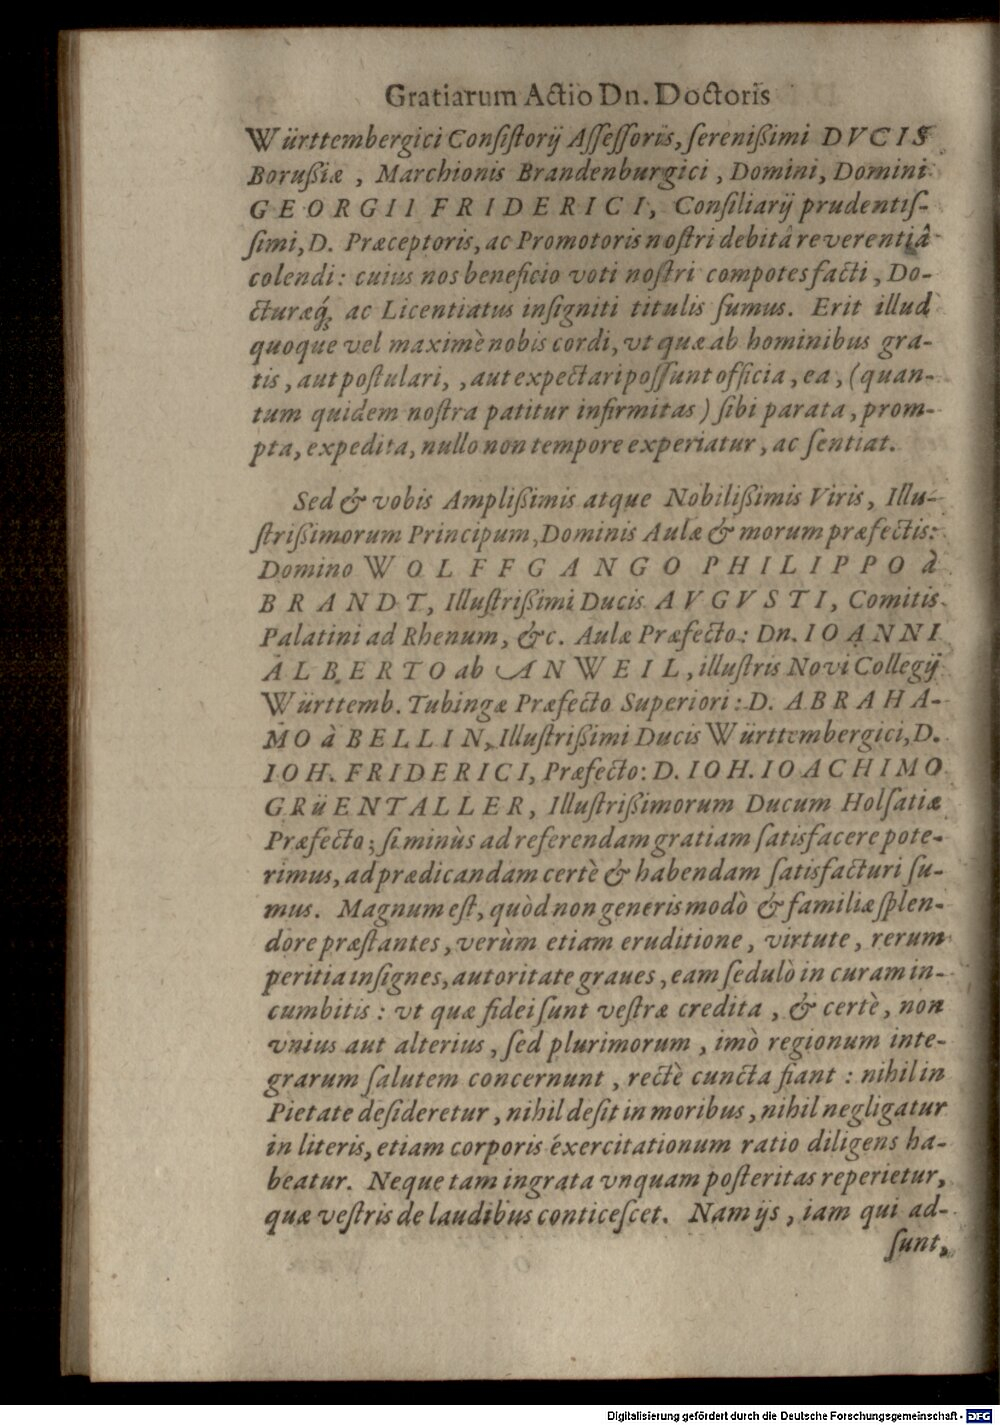 Gratiarum Actio Dn. Doctoris
Württembergici Conſiſtorij Aſſeſſoris, ſerenißimi DVCIS
Borußiæ, Marchionis Brandenburgici, Domini, Domini
GEORGII FRIDERICI, Conſiliarij prudentiſ-
ſimi, D. Præceptoris, ac Promotoris noſtri debitâ reverentiâ
colendi: cuius nos beneficio voti noſtri compotes facti, Do-
cturæq́, ac Licentiatus inſigniti titulis ſumus. Erit illud
quoque vel maximè nobis cordi, vt quæ ab hominibus gra-
tis, aut poſtulari, , aut expectari poſſunt officia, ea, (quan-
tum quidem noſtra patitur infirmitas) ſibi parata, prom-
pta, expedita, nullo non tempore experiatur, ac ſentiat.
Sed & vobis Amplißimis atque Nobilißimis Viris, Illu-
ſtrißimorum Principum, Dominis Aulæ & morum præfectis:
Domino WOLFFGANGO PHILIPPO à
BRANDT, Illuſtrißimi Ducis AVGVSTI, Comitis
Palatini ad Rhenum, &c. Aulæ Præfecto: Dn. IOANNI
ALBERTO ab ANWEIL, illuſtris Novi Collegij
Württemb. Tubingæ Præfecto Superiori: D. ABRAHA-
MO à BELLIN, Illuſtrißimi Ducis Württembergici, D.
IOH. FRIDERICI, Præfecto: D. IOH. IOACHIMO
GRüENTALLER, Illuſtrißimorum Ducum Holſatiæ
Præfecto; ſi minùs ad referendam gratiam ſatisfacere pote-
rimus, ad prædicandam certè & habendam ſatisfacturi ſu-
mus. Magnum eſt, quòd non generis modò & familiæ ſplen-
dore præſtantes, verùm etiam eruditione, virtute, rerum
peritia inſignes, autoritate graues, eam ſedulò in curam in-
cumbitis: vt quæ fidei ſunt veſtræ credita, & certè, non
vnius aut alterius, ſed plurimorum, imò regionum inte-
grarum ſalutem concernunt, rectè cuncta fiant: nihil in
Pietate deſideretur, nihil deſit in moribus, nihil negligatur
in literis, etiam corporis éxercitationum ratio diligens ha-
beatur. Neque tam ingrata vnquam poſteritas reperietur,
quæ veſtris de laudibus conticeſcet. Nam ijs, iam qui ad-
ſunt,
Digitalisierung gefördert durch die Deutsche Forschungsgemeinschaft - DFG